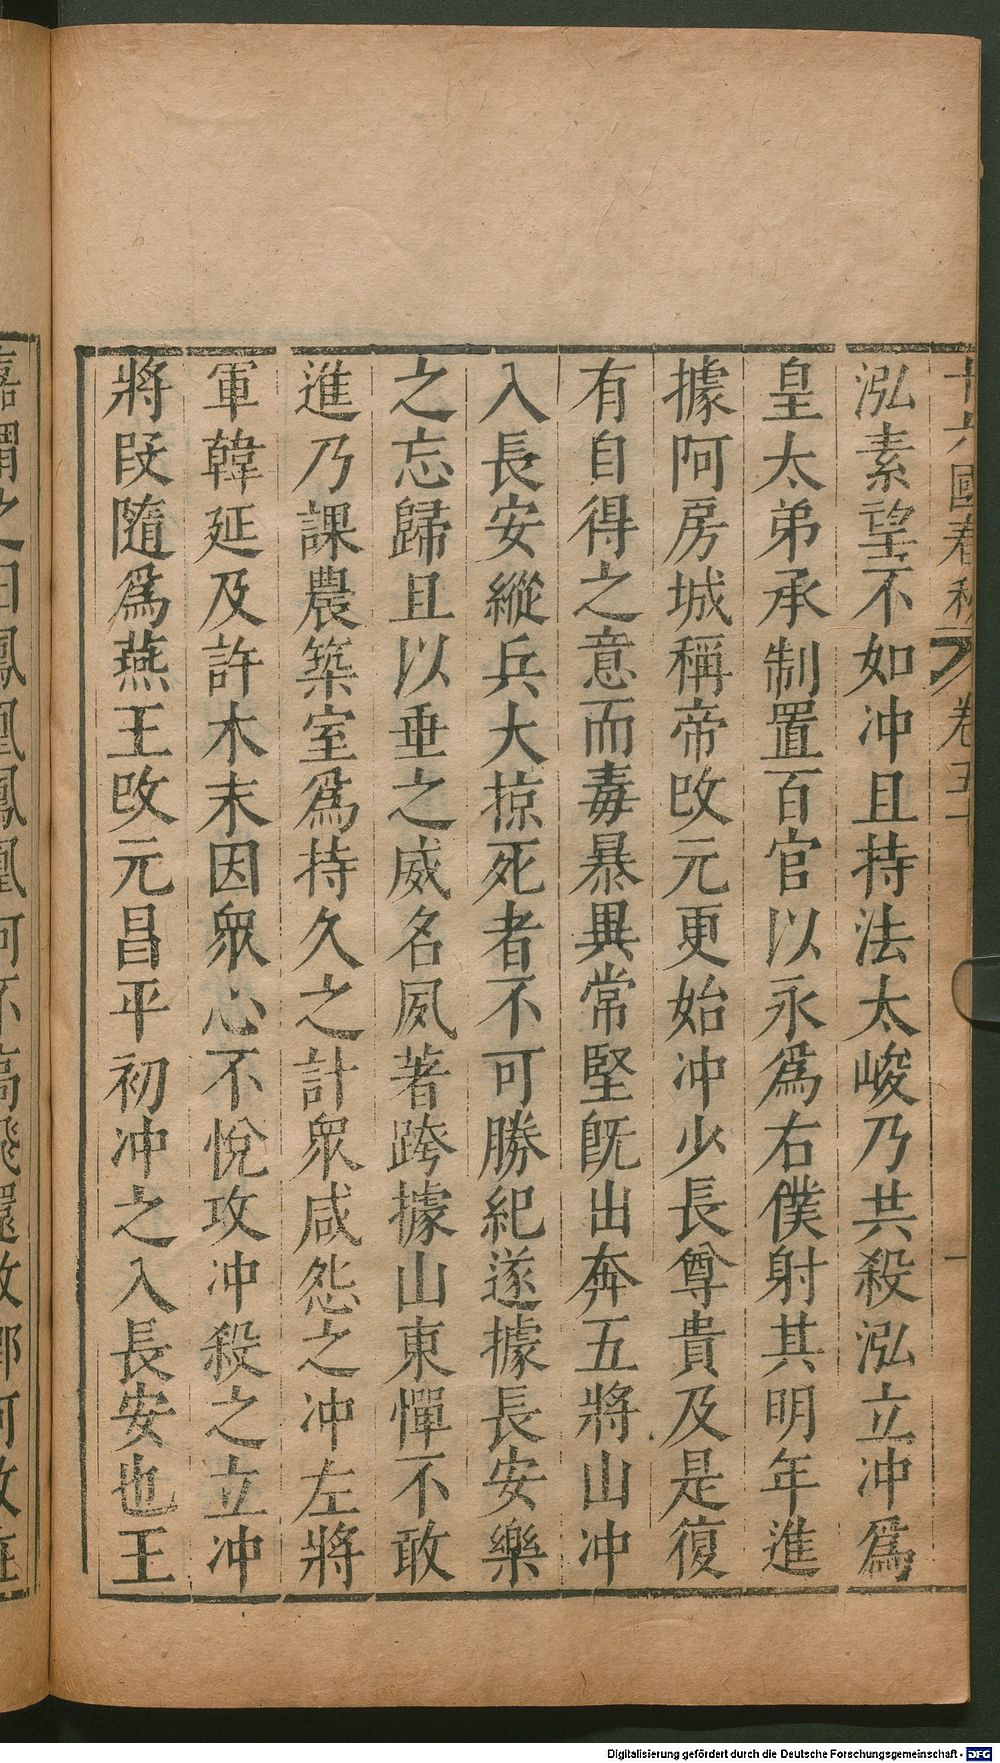 十六國春秋 卷五 一
泓素望不如冲且持法太峻乃共殺泓立冲爲
皇太弟承制置百官以永爲右僕射其明年進
據阿房城稱帝改元更始冲少長尊貴及是復
有自得之意而毒暴異常堅旣出奔五將山冲
入長安縱兵大掠死者不可勝紀遂據長安樂
之忘歸且以垂之威名夙著跨據山東憚不敢
進乃課農築室爲持久之計衆咸怨之冲左將
軍韓延及許木末因衆心不悅攻冲殺之立冲
將叚隨爲燕王改元昌平初冲之入長安也王
嘉謂之曰鳳凰鳳凰何不高飛還故鄉何故在
Digitalisierung gefördert durch die Deutsche Forschungsgemeinschaft - DFG